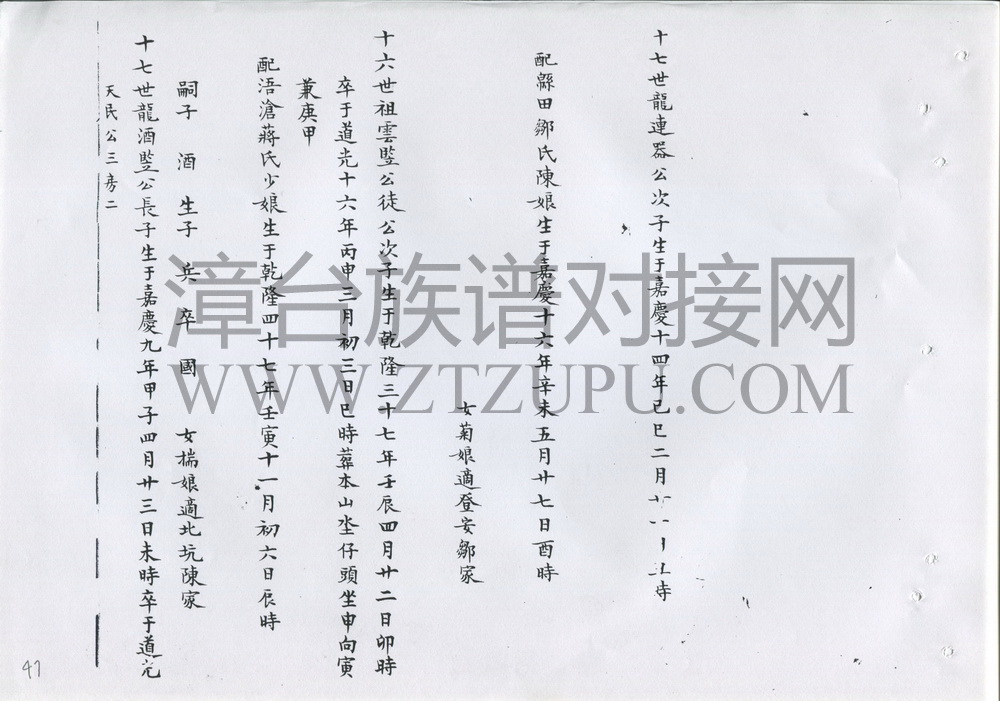 十七世龍連器公次子生于嘉慶十四年己巳二月廿
配緜田鄒氏陳娘生于嘉慶十六年辛未五月廿七日酉時
女菊娘適登安鄒家
十六世祖雲監公徒公次子生于乾隆三十七年壬辰四月廿二日卯時
卒于道光十六年丙申三月初三日巳時葬本山坔仔頭坐申向寅
兼庚甲
配浯滄蔣氏少娘生于乾隆四十七年壬寅十一月初六日辰時
嗣子 酒 生子 兵 卒 國 女椯娘適北坑陳家
十七世龍酒監公長子生于嘉慶九年甲子四月廿三日未時卒于道光
天民公三房二
47
漳台族谱对接网
WWW.ZTZUPU.COM